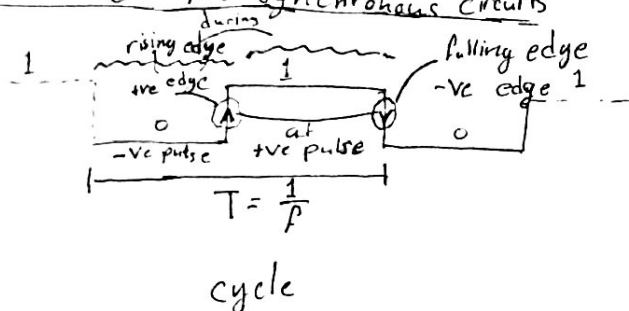 Synchronous Circuits
during
rising edge
falling edge
1
+ve edge
1
-ve edge 1
0
at
0
-ve pulse
+ve pulse
T = 1/f
cycle